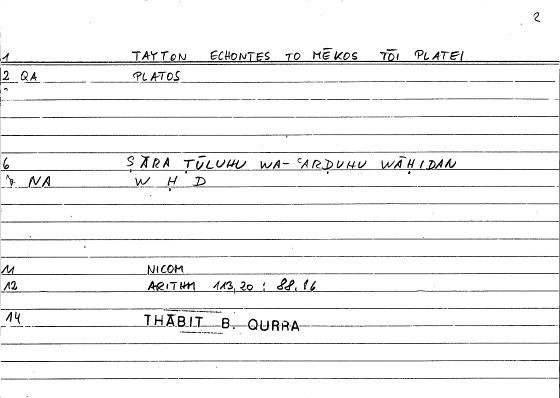 2
1 TAYTON ECHONTES TO MĒKOS TŌI PLATEI
2 QA PLATOS
6 ṢĀRA ṬŪLUHU WA-ʿARḌUHU WĀḤIDAN
7 NA W Ḥ D
11 NICOM
12 ARITHM 113,20 : 88,16
14 THĀBIT B. QURRA